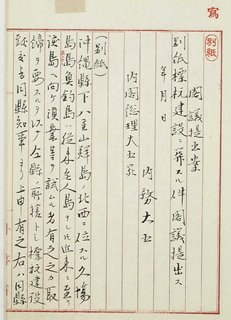 写
別紙
閣議提出案
別紙標杭建設ニ関スル件閣議提出ス
年 月 日
内務大臣
内閣総理大臣宛
(別紙)
沖縄県下八重山群島ノ北西ニ位スル久場
島魚釣島ハ従来無人島ナレトモ近来ニ至リ
該島ヘ向ケ漁業等ヲ試ムル者有之之カ取
締ヲ要スルヲ以テ仝県ノ所轄トシ標杭建設
致度旨同県知事ヨリ上申有之右ハ同県